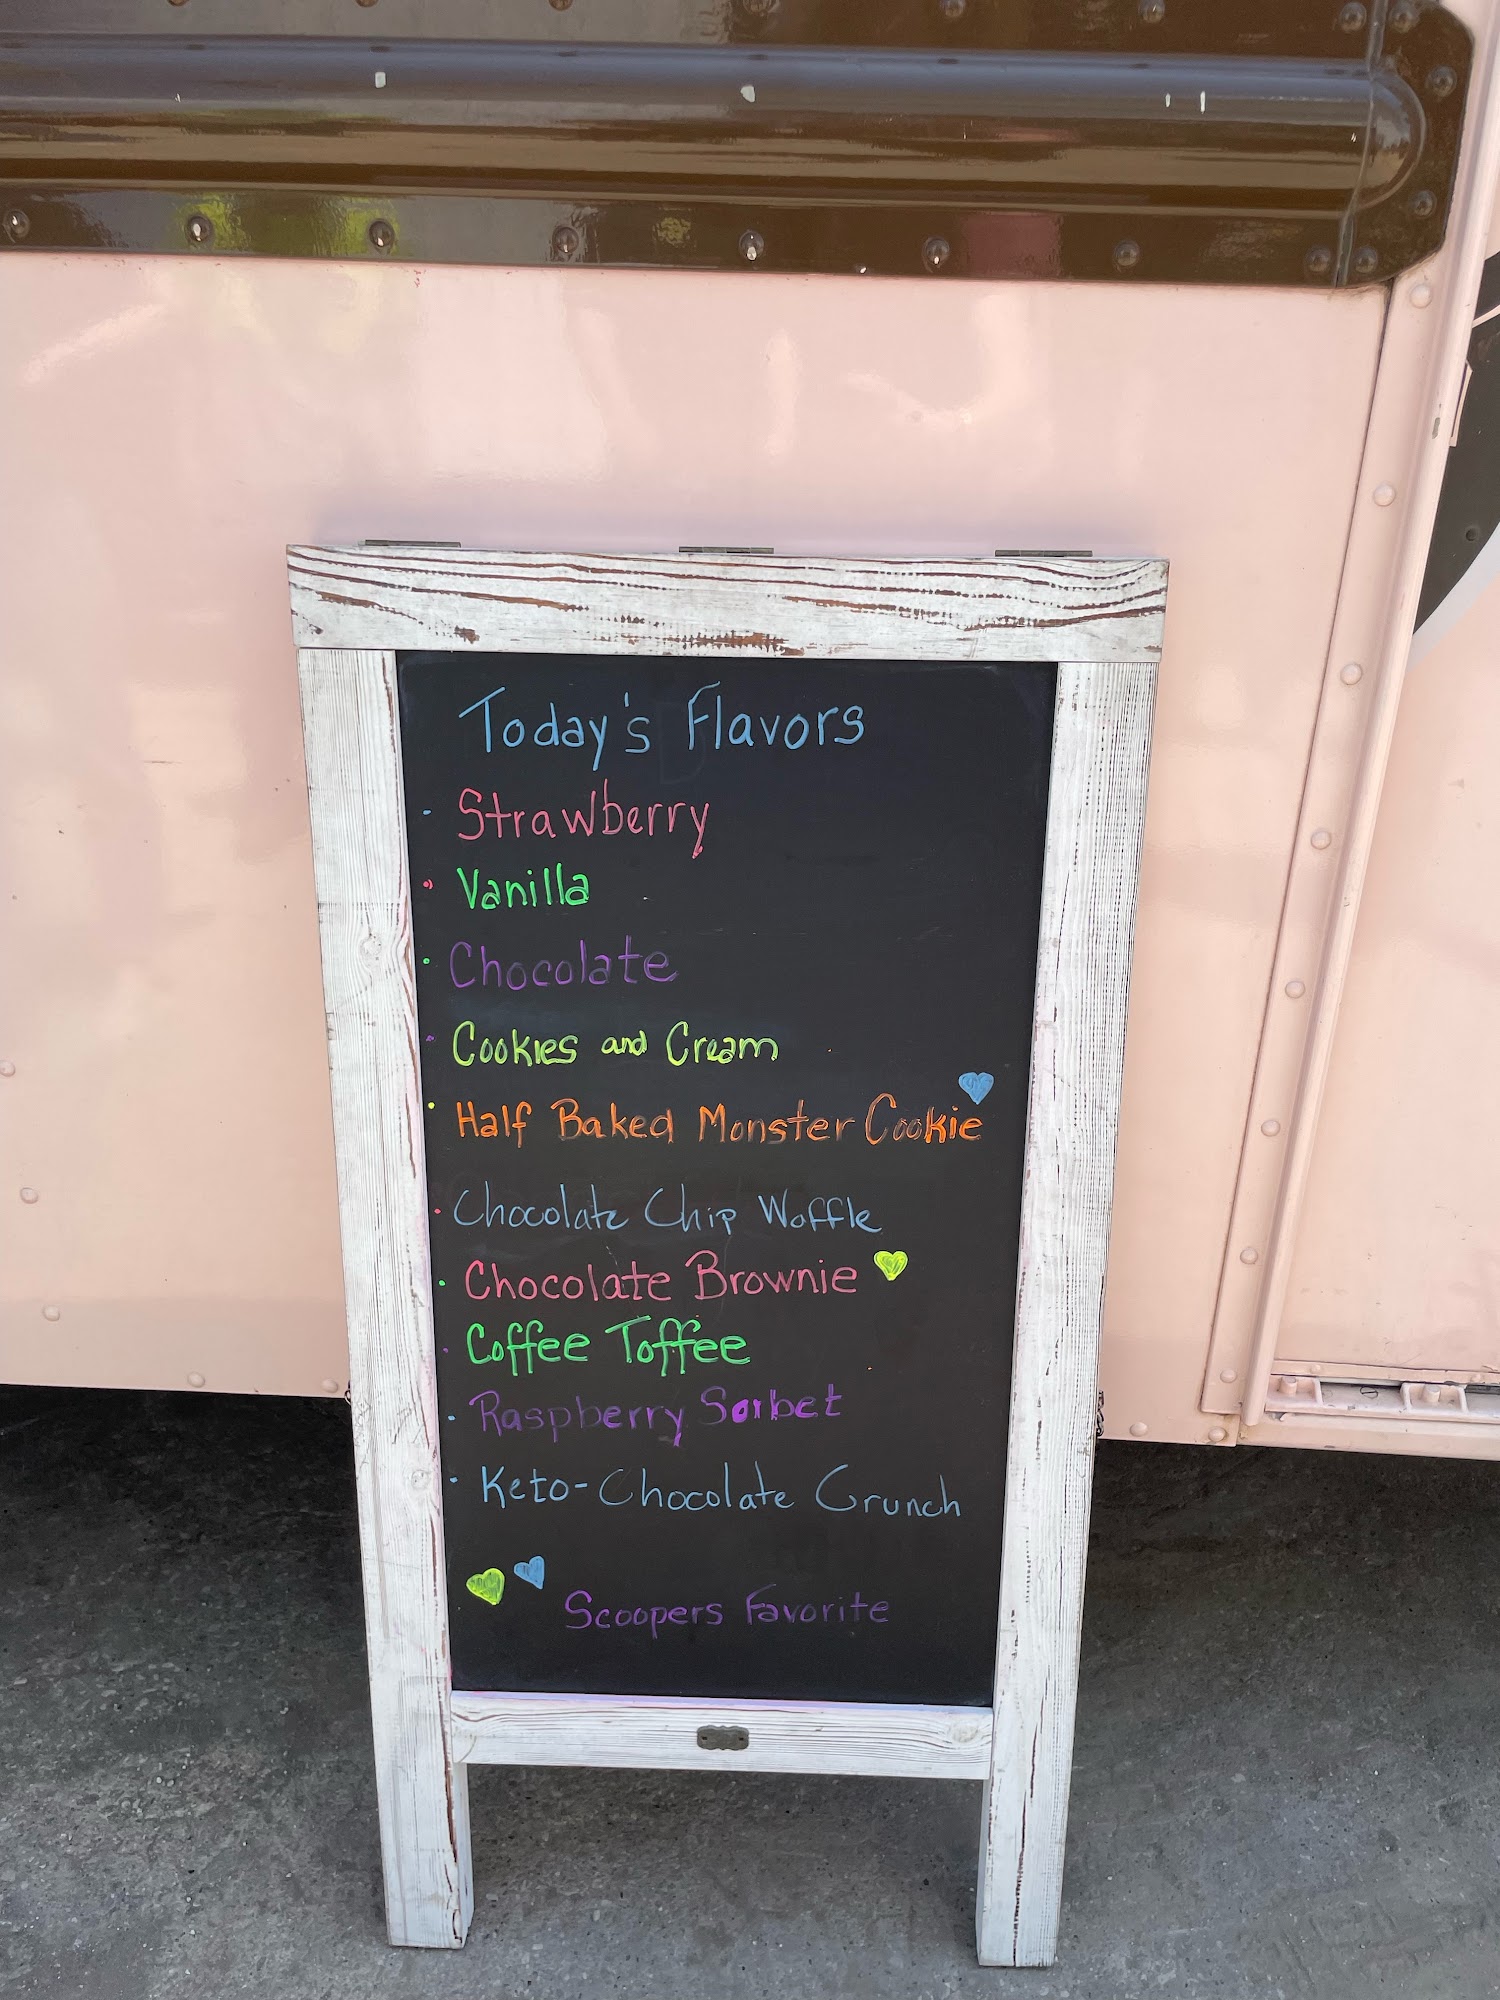 Today's Flavors
· Strawberry
· Vanilla
· Chocolate
· Cookies and Cream
· Half Baked Monster Cookie
· Chocolate Chip Waffle
· Chocolate Brownie
· Coffee Toffee
· Raspberry Sorbet
· Keto-Chocolate Crunch
Scoopers Favorite